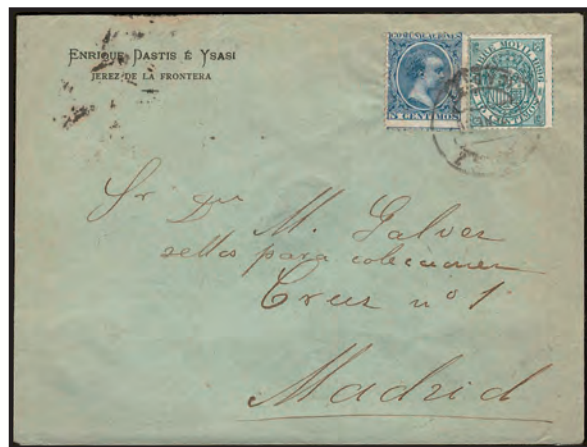 ENRIQUE DASTIS É YSASI
JEREZ DE LA FRONTERA
COMUNICACIONES
5 CENTIMOS
MOVIL
10 CENTIMOS
Sr Dn M. Galvez
sellos para colecciones
Cruz nº 1.
Madrid